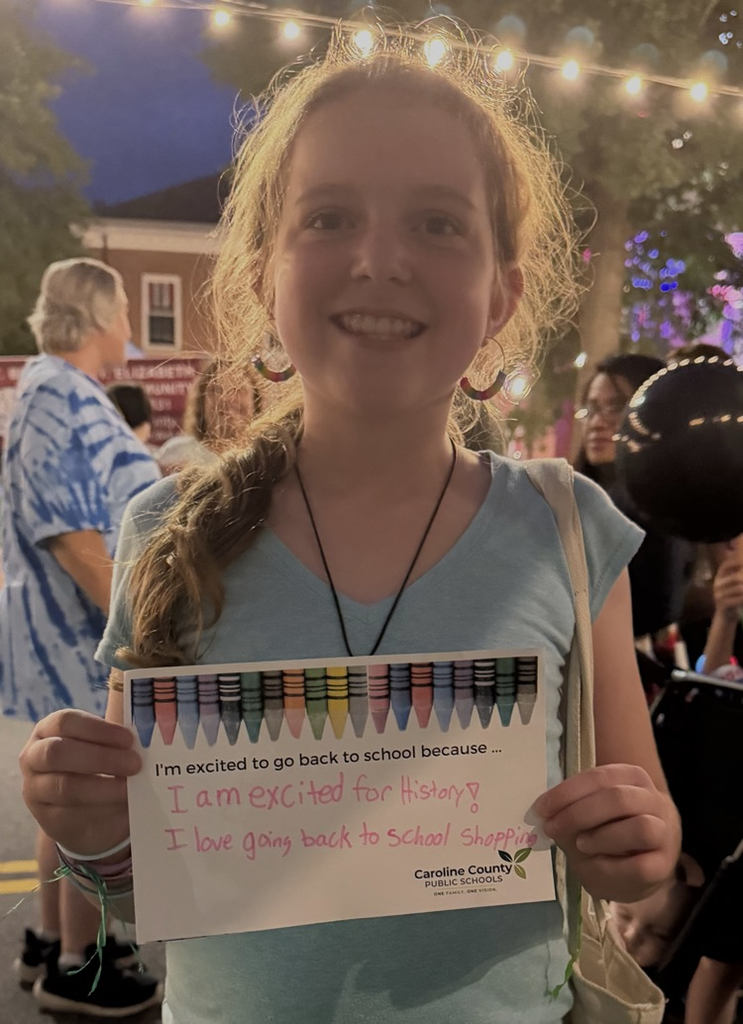 ELIZABETH
MUNITY
I'm excited to go back to school because ...
I am excited for History!
I love going back to school shopping
Caroline County
PUBLIC SCHOOLS
ONE FAMILY. ONE VISION.